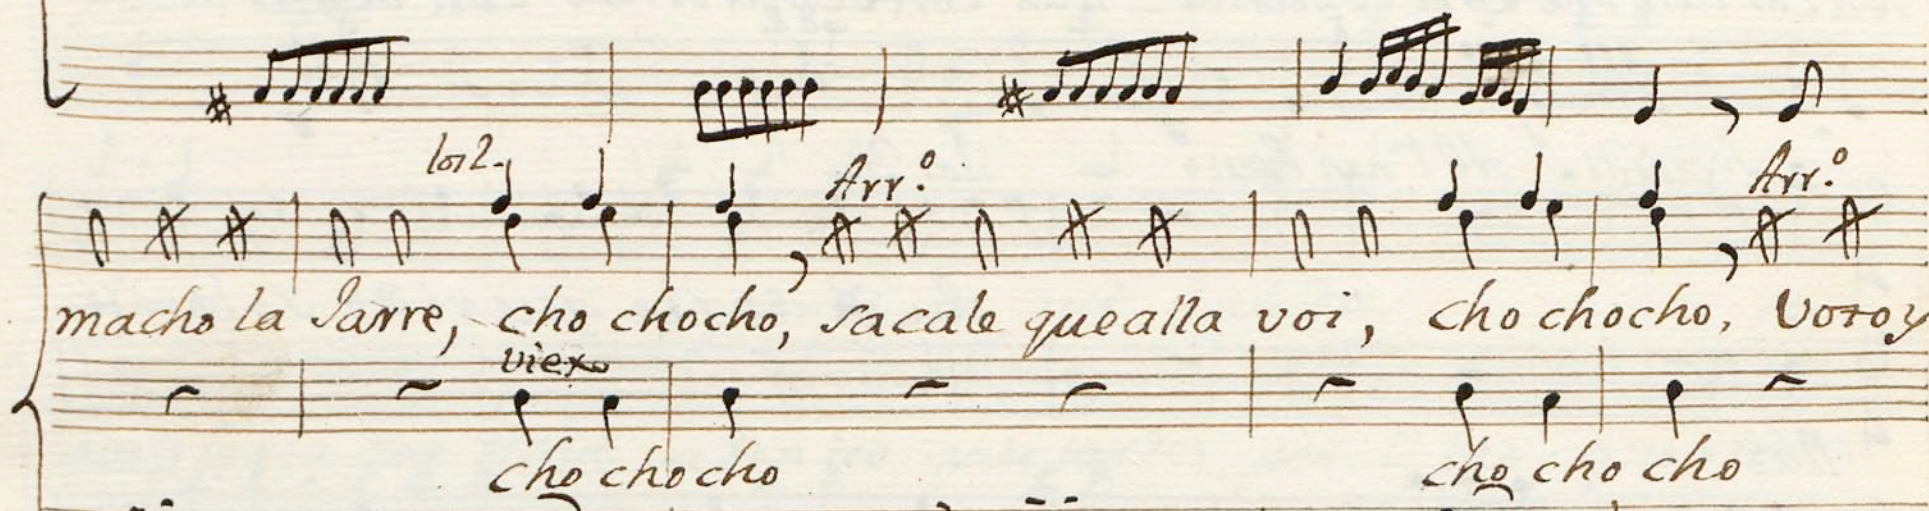 los 2. Arr.º Arr.º
macho la Jarre, cho chocho, sacale quealla voi, cho chocho, Vo
viexo
cho chocho cho cho cho